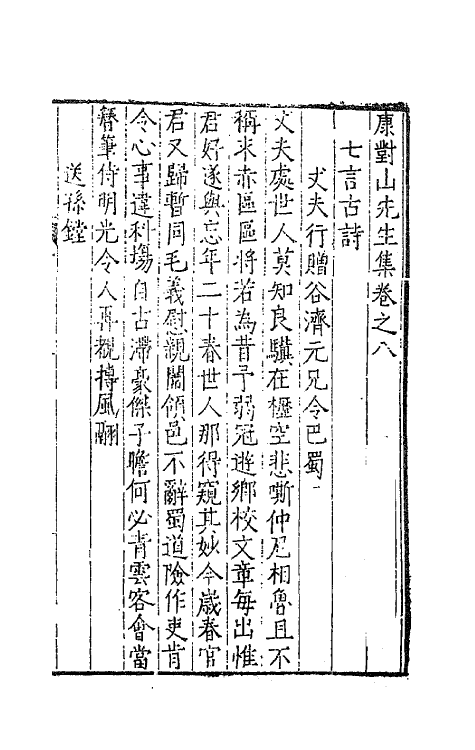 康對山先生集卷之八
七言古詩
丈夫行贈谷濟元兄令巴蜀
丈夫處世人莫知良驥在櫪空悲嘶仲尼相魯且不
稱米赤區區將若為昔予弱冠遊鄉校文章每出惟
君好遂與忘年二十春世人那得窺其妙今歲春官
君又歸暫同毛義慰親闈領邑不辭蜀道險作吏肯
令心事違科塲自古滯豪傑子瞻何必青雲客會當
簪筆侍明光令人再覩摶風翮
送孫鏜